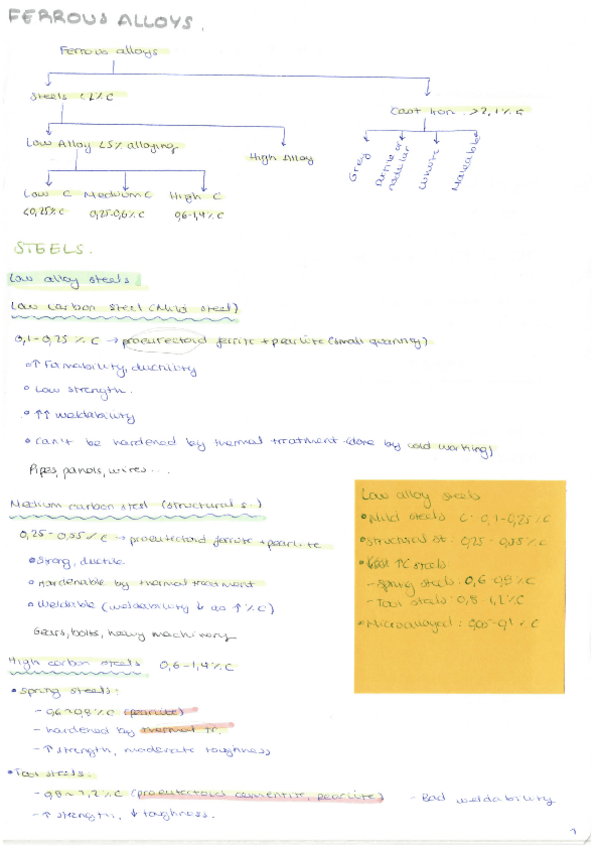 FERROUS ALLOYS.
Ferrous alloys
Steels <2% C
Cast Iron >2,1% C
Low Alloy <5% alloying
High Alloy
Grey
Ductile or nodular
White
Maleable
Low C
Medium C
High C
<0,25% C
0,25-0,6% C
0,6-1,4% C
STEELS.
Low alloy steels
Low carbon steel (Mild steel)
0,1-0,25 % C → proeutectoid ferrite + pearlite (small quantity)
↑ Formability, ductility
Low strength.
↑↑ weldability
Can't be hardened by thermal treatment (done by cold working)
Pipes, panels, wires...
Medium carbon steel (structural s.)
0,25-0,55% C → proeutectoid ferrite + pearlite
Strong, ductile
Hardenable by thermal treatment
Weldable (weldability ↓ as ↑ % C)
Gears, bolts, heavy machinery
High carbon steels 0,6-1,4% C
• Spring steels:
- 0,6-0,8% C (pearlite)
- hardened by thermal Tr.
- ↑ strength, moderate toughness
• Tool steels:
- 0,8-1,2% C (proeutectoid cementite, pearlite) - Bad weldability
- ↑ strength, ↓ toughness.
Low alloy steels
• Mild steels C: 0,1-0,25% C
• Structural st: 0,25-0,55% C
• ↑C steels:
- Spring steels: 0,6-0,8% C
- Tool steels: 0,8-1,2% C
• Microalloyed: % C
1